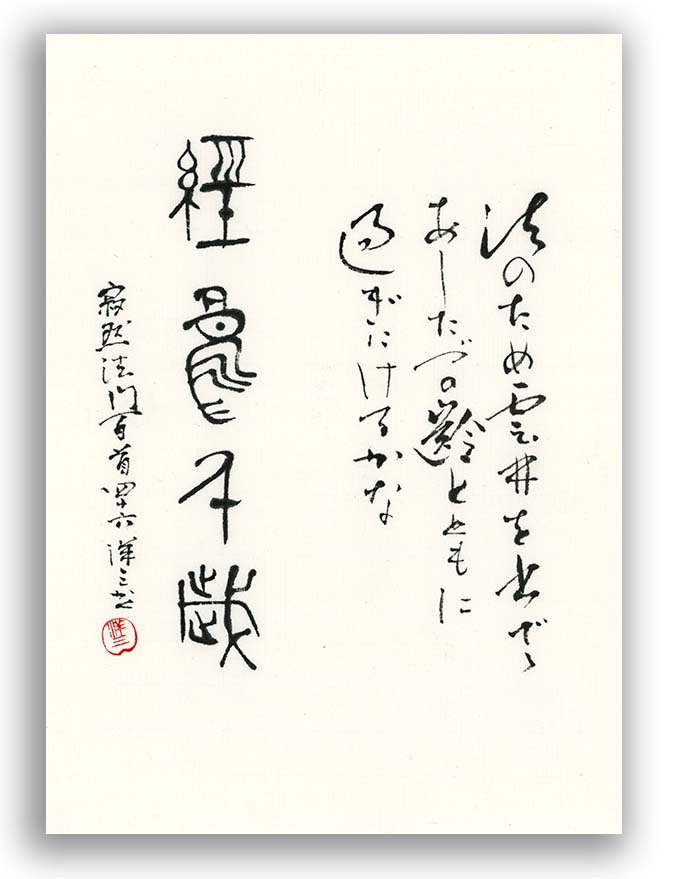 法のため雲井を出でゝ
あしたづの齢とともに
過ぎにけるかな
經於千歳
寂然法門百首四十六 洋三書
洋三